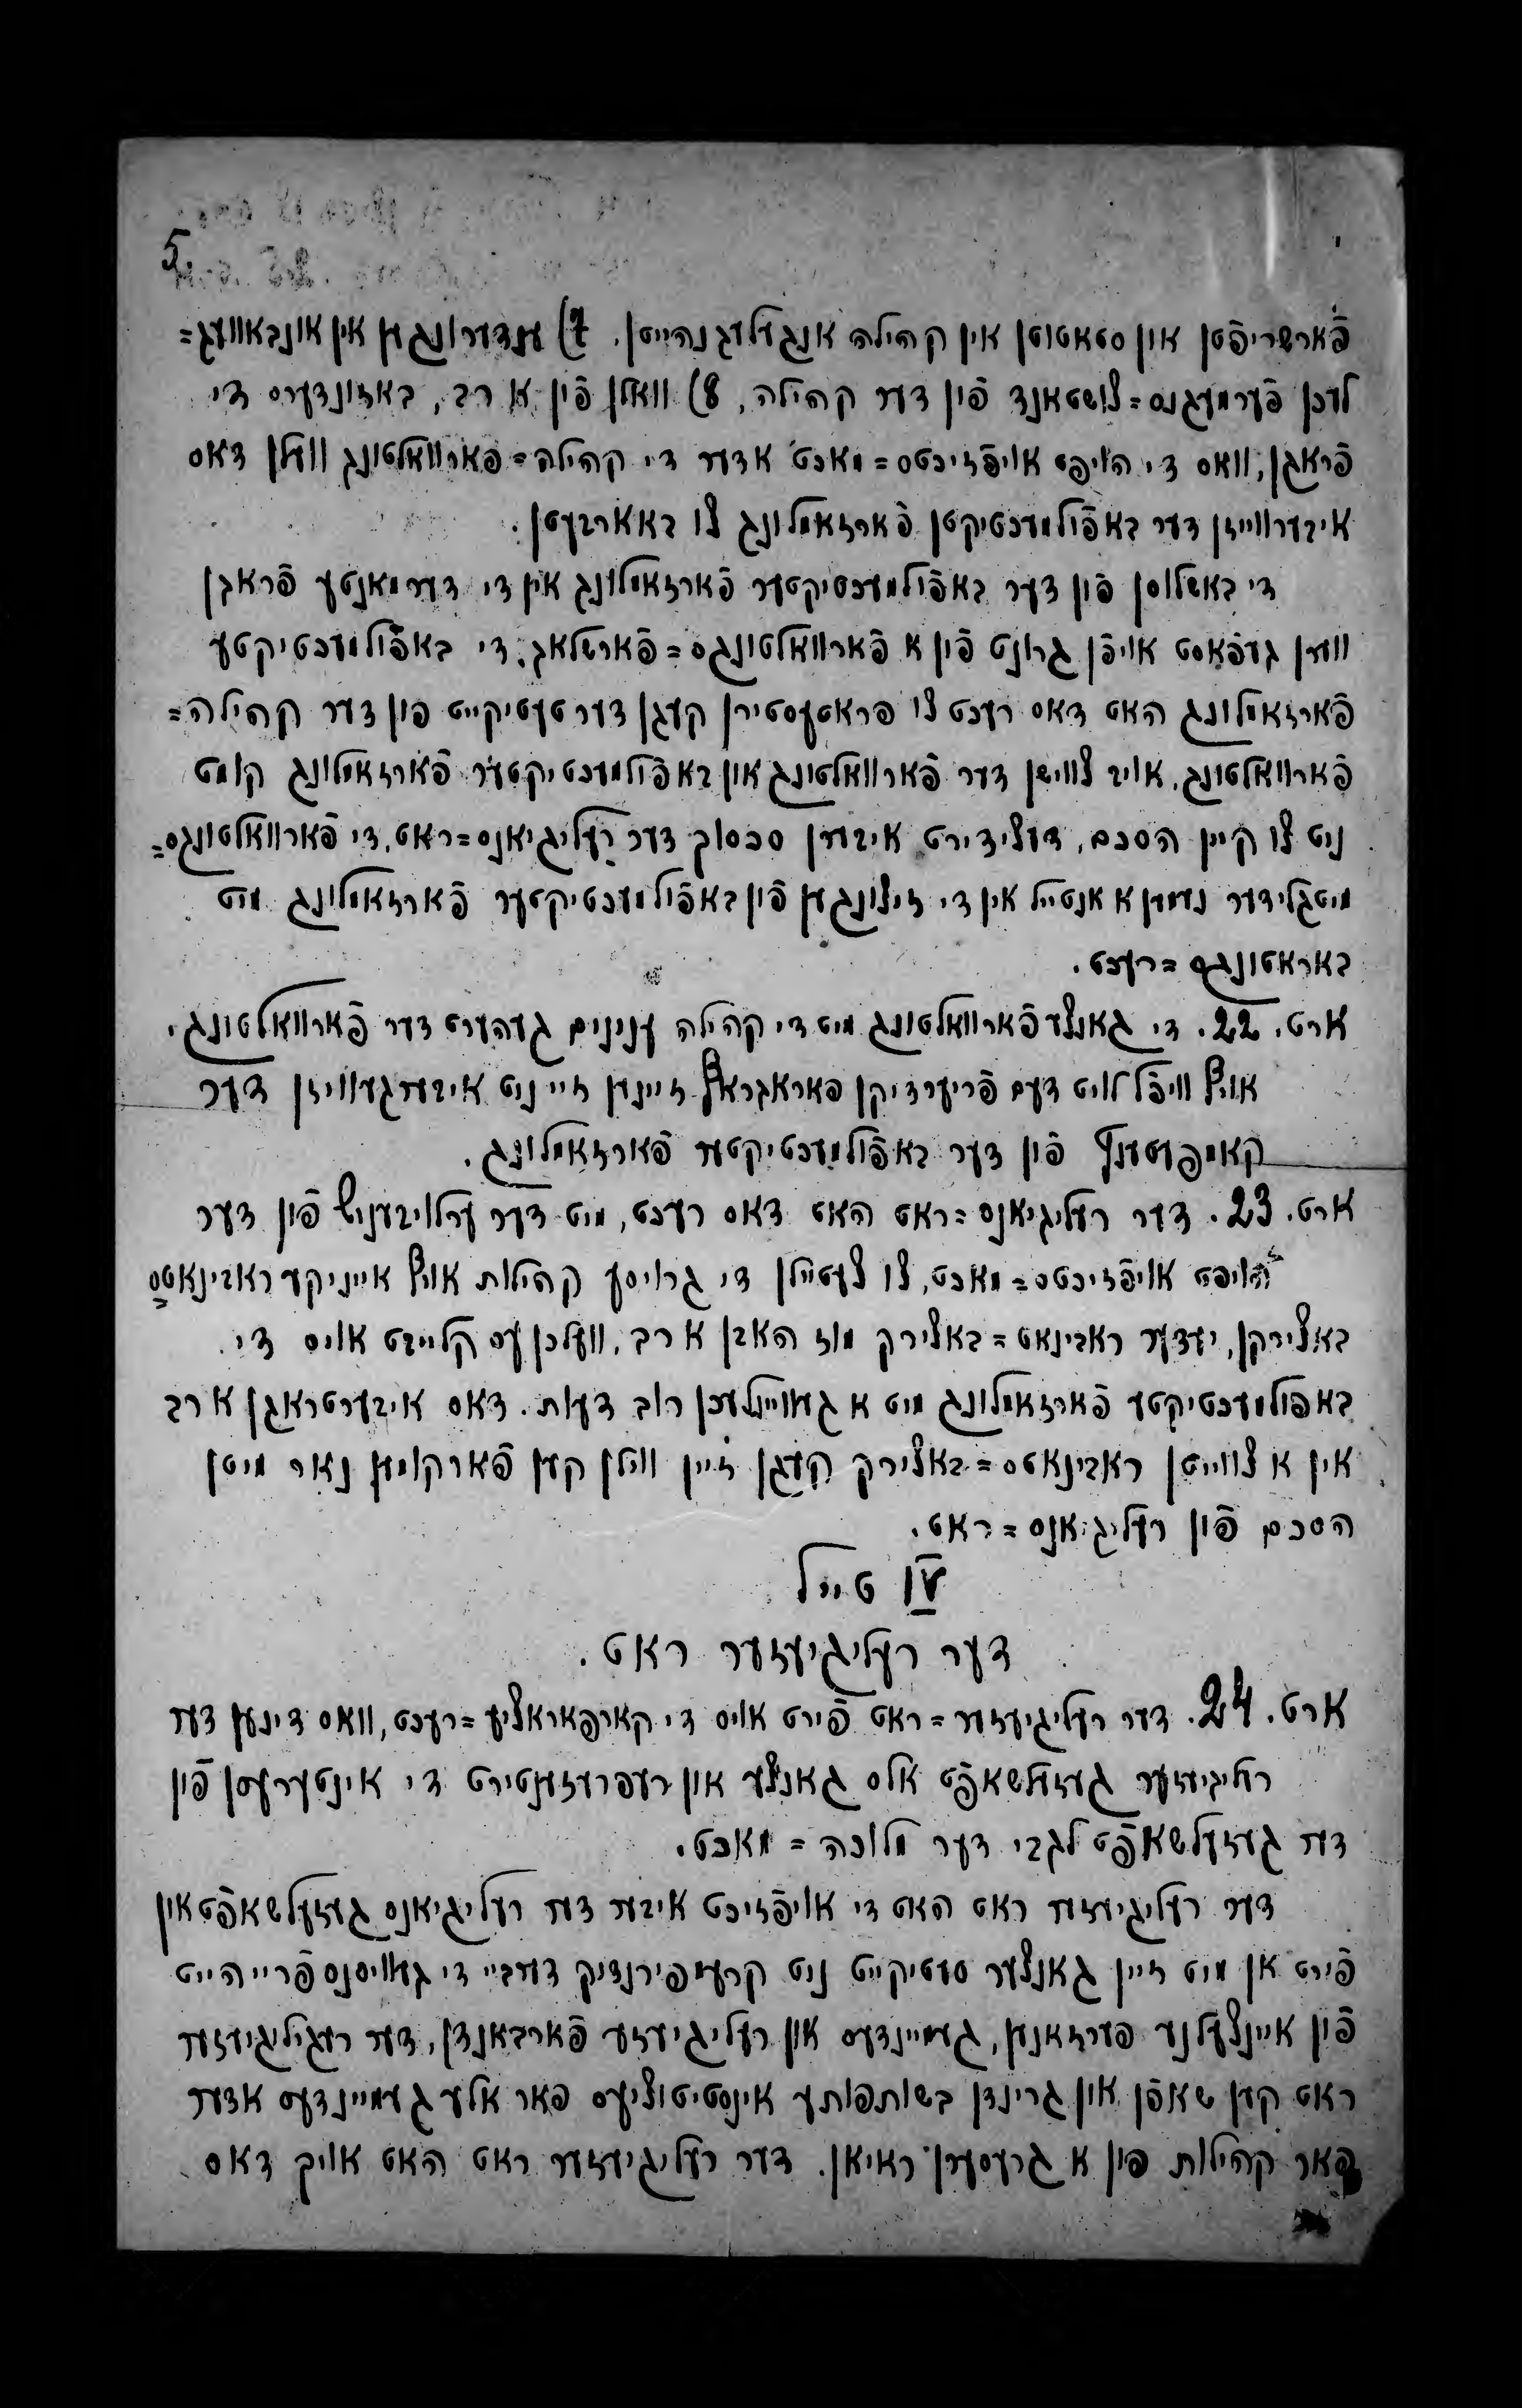 5.
פֿארשריפֿטן און סטאטוטן אין קהילה אנגעלעגנהייטן. 7) ענדערונגען אין אונבאוועג=
לעכן פֿערמעגנס=צושטאנד פֿון דער קהילה, 8) וואלן פֿון א רב, באזונדערס די
פֿראגן, וואס די הויפט אויפֿזיכטס=מאכט אדער די קהילה=פארוואלטונג וועלן דאס
איבערווייזן דער באפֿולמעכטיקטן פֿארזאמלונג צו באארבעטן.
די באשלוסן פֿון דער באפֿולמעכטיקטער פֿארזאמלונג אין די דערמאנטע פֿראגן
ווערן געפֿאסט אויפֿן גרונט פֿון א פֿארוואלטונגס=פֿארשלאג. די באפֿולמעכטיקטע
פֿארזאמלונג האט דאס רעכט צו פראטעסטירן קעגן דער טעטיקייט פון דער קהילה=
פֿארוואלטונג, אויב צווישן דער פֿארוואלטונג און באפֿולמעכטיקטער פֿארזאמלונג קומט
ניט צו קיין הסכם, דעצידירט איבערן סכסוך דער רעליגיאנס=ראט. די פֿארוואלטונגס=
מיטגלידער נעמען א אנטייל אין די זיצונגען פֿון באפֿולמעכטיקטער פֿארזאמלונג מיט
באראטונגס=רעכט.
ארט. 22. די גאנצע פֿארוואלטונג מיט די קהילה ענינים געהערט דער פֿארוואלטונג.
אויף וויפֿל לויט דעם פֿריערדיקן פאראגראף זיינען זיי ניט איבערגעוויזן דער
קאמפעטענץ פֿון דער באפֿולמעכטיקטער פֿארזאמלונג.
ארט. 23. דער רעליגיאנס=ראט האט דאס רעכט, מיט דער ערלויבעניש פֿון דער
הויפט אויפֿזיכטס=מאכט, צו צעטיילן די גרויסע קהילות אויף אייניקע ראבינאטס=
באצירקן, יעדער ראבינאט=באצירק מוז האבן א רב, וועלכן עס קלייבט אויס די
באפֿולמעכטיקטע פֿארזאמלונג מיט א געוויינלעכן רוב דעות. דאס איבערטראגן א רב
אין א צווייטן ראבינאטס=באצירק קעגן זיין ווילן קען פֿארקומען נאר מיטן
הסכם פֿון רעליגיאנס=ראט.
IV טייל
דער רעליגיעזער ראט.
ארט. 24. דער רעליגיעזער=ראט פֿירט אויס די קארפאראציע=רעכט, וואס דינען דער
רעליגיעזער געזעלשאפֿט אלס גאנצע און רעפרעזענטירט די אינטערעסן פֿון
דער געזעלשאפֿט לגבי דער מלוכה=מאכט.
דער רעליגיעזער ראט האט די אויפֿזיכט איבער דער רעליגיאנס געזעלשאפֿט און
פֿירט אן מיט זיין גאנצער טעטיקייט ניט קרעמפירנדיק דערביי די געוויסנס פֿרייהייט
פֿון איינצעלנע פערזאנען, געמיינדעס און רעליגיעזע פֿארבאנדן, דער רעליגיעזער
ראט קען שאפֿן און גרינדן בשותפותע אינסטיטוציעס פאר אלע געמיינדעס אדער
פאר קהילות פון א גרעסערן ראיאן. דער רעליגיעזער ראט האט אויך דאס